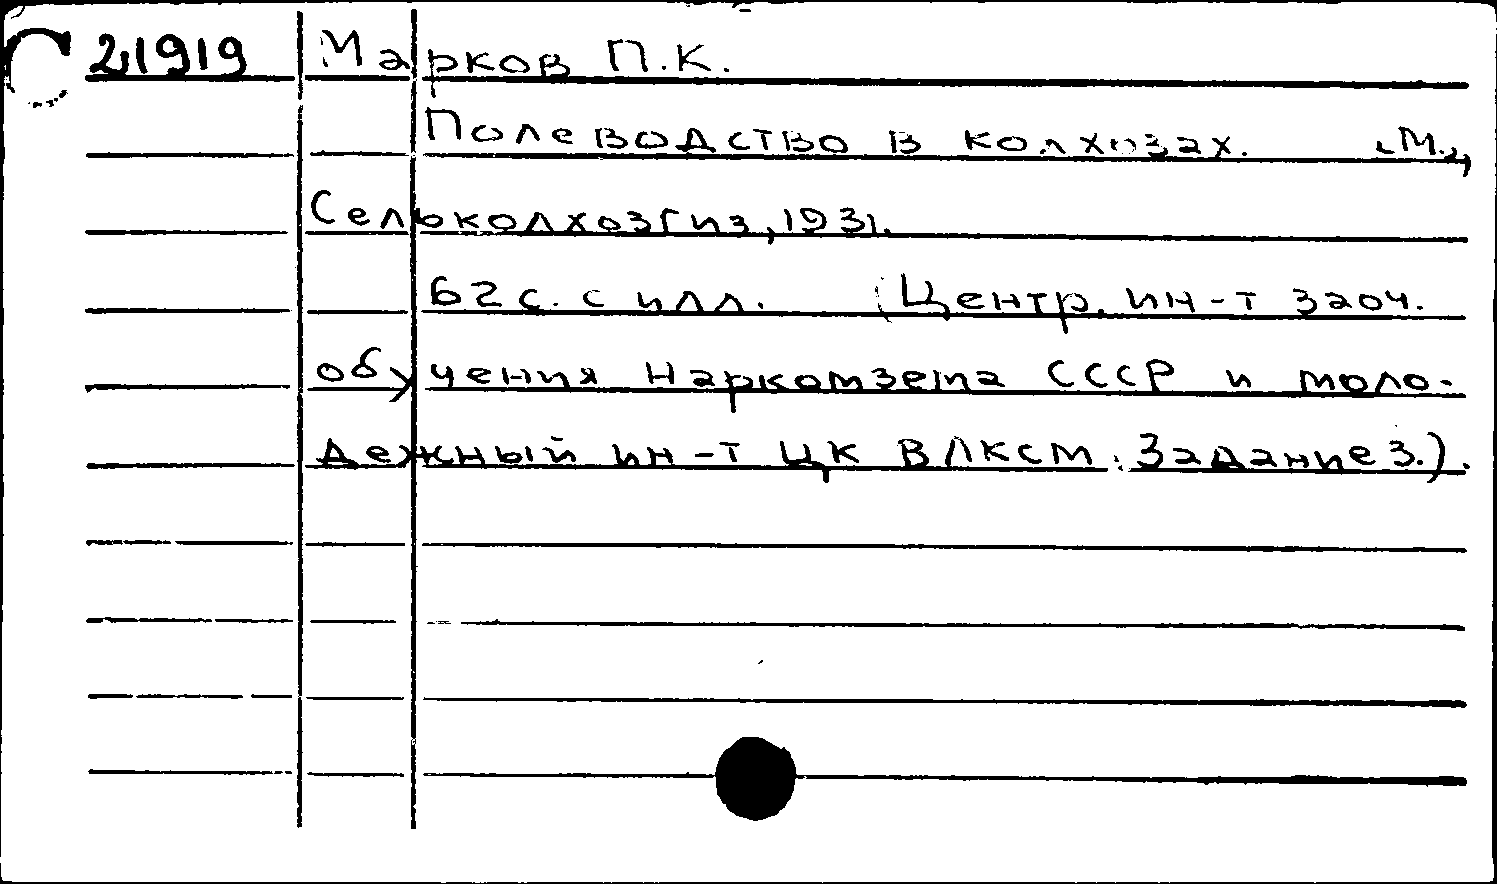 С 21919 Марков П.К.
Полеводство в колхозах. [М.,]
Сельколхозгиз, 1931.
62 с. с илл. (Центр. ин-т заоч.
обучения Наркомзема СССР и моло-
дежный ин-т ЦК ВЛКСМ. Задание 3.).